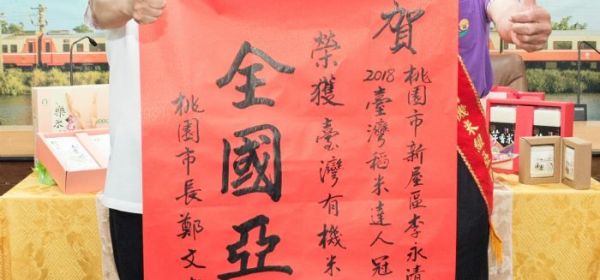 賀
桃園市新屋區李永清
2018臺灣稻米達人冠
榮獲臺灣有機米
全國亞
桃園市長鄭文